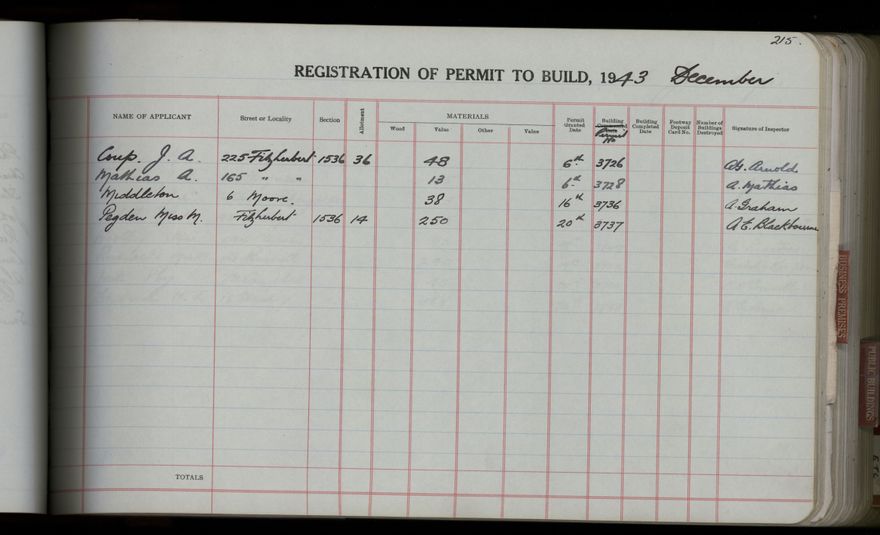 215.
REGISTRATION OF PERMIT TO BUILD, 1943 December
NAME OF APPLICANT Street or Locality Section Allotment MATERIALS Wood Value Other Value Permit Granted Date Building Permit No Building Completed Date Footway Deposit Card No. Number of Buildings Destroyed Signature of Inspector
Coup. J. A. 225 Fitzherbert 1536 36 48 6th 3726 A.G. Arnold
Mathias A. 165 " " 13 6th 3728 A. Mathias
Middleton 6 Moore. 38 16th 3736 A. Graham
Pegden Miss M. Fitzherbert 1536 14 250 20th 3737 A E. Blackbourne
TOTALS
BUSINESS PREMISES
PUBLIC BUILDINGS